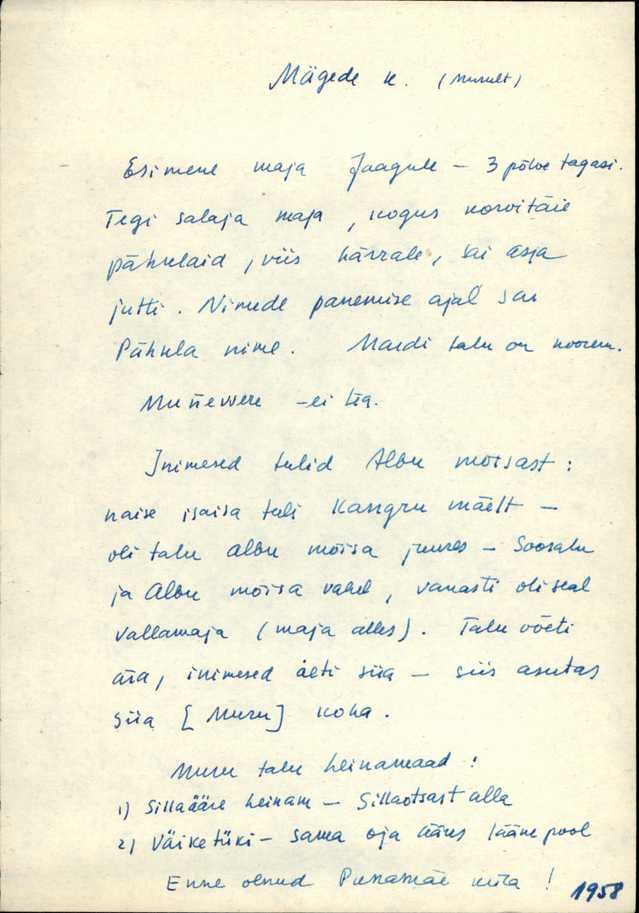 Mägede k. (Murult)
Esimene maja Jaagule – 3 põlve tagasi.
Tegi salaja maja, kogus korvitäie
pähklaid, viis härrale, sai asja
jutti. Nimede panemise ajal sai
Pähkla nime. Mardi talu on noorem.
Muñevere – ei tea.
Inimesed tulid Albu mõisast:
naise isaisa tuli Kangru mäelt –
oli talu Albu mõisa juures – Soosalu
ja Albu mõisa vahel, vanasti oli seal
vallamaja (maja alles). Talu võeti
ära, inimesed aeti siia – siis asutas
siia [Muru] koha.
Muru talu heinamaad:
1) Sillaääre heinam – Sillaotsast alla
2) Väiketüki – sama oja ääres lääne pool
Enne olnud Punamäe küla!
1958